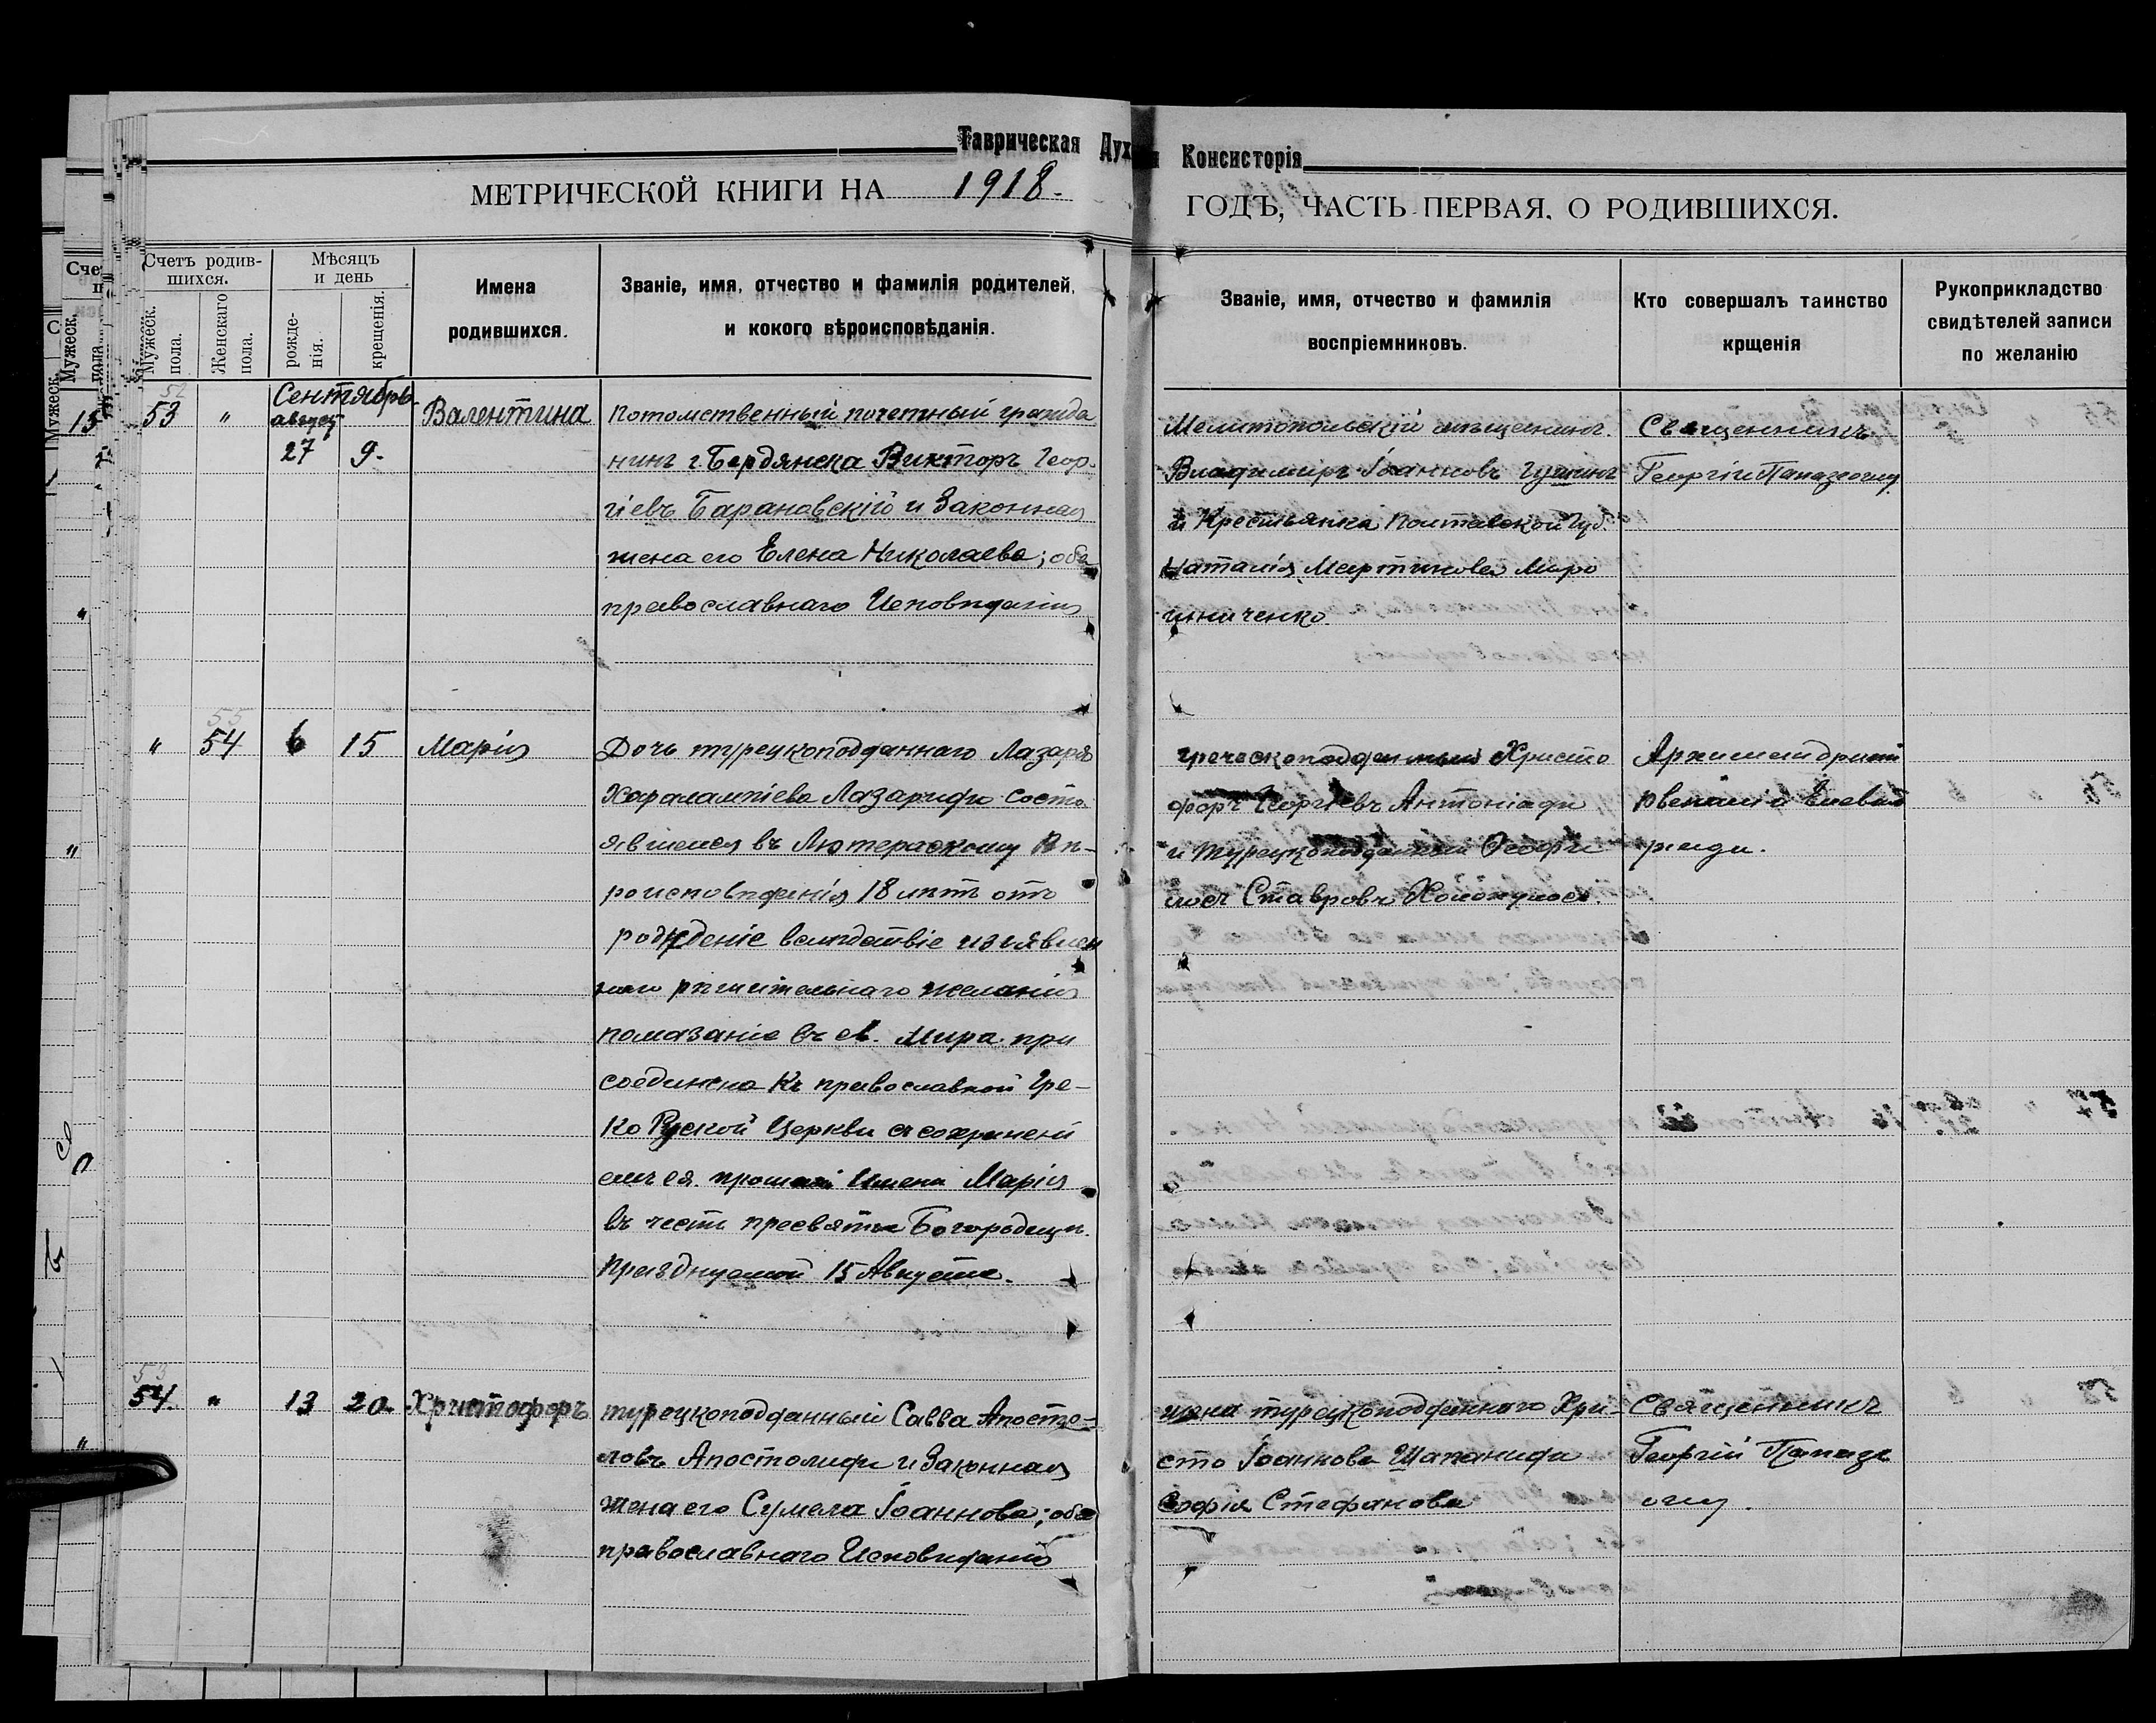 Таврическая Дух
я Консисторія
МЕТРИЧЕСКОЙ КНИГИ НА 1918.
ГОДЪ, ЧАСТЬ ПЕРВАЯ, О РОДИВШИХСЯ.
Счетъ родив-
шихся.
Мужеск.
пола.
Женскаго
пола.
Мѣсяцъ
и день
рожде-
нія.
крещенія.
Имена
родившихся.
Званіе, имя, отчество и фамилія родителей,
и кокого вѣроисповѣданія.
Званіе, имя, отчество и фамилія
воспріемниковъ.
Кто совершалъ таинство
крщенія
Рукоприкладство
свидѣтелей записи
по желанію
Сентябрь
52
53 " август 27 9. Валентина
потомственный почетный гражда
нинъ г. Бердянска Викторъ Геор-
гіевъ Барановскій и Законная
жена его Елена Николаева; оба
православнаго Исповѣданія
Мелитопольскій мѣщанинъ
Владимиръ Іоанновъ
и Крестьянка Полтавской Губ.
Наталія Мартинова Миро
шниченко
Священникъ
Георгій Папазоглу
55
" 54 6 15 Марія
Дочь турецкоподданнаго Лазаря
Харалампіева Лазариди состо
явшемся въ Лютераскому Вѣ-
роисповѣданія 18 лѣтъ отъ
рожденіе вслѣдствіе изъявлен
наго рѣшительнаго желанія
помазаніе въ св. Мира при
соединена Къ православной Гре-
ко Руской Церкви съ сохранені
емъ ея Имени Марія
въ честь пресвятые Богородицы
празднуемой 15 Августа.
греческоподданный Христо
форъ Георгіевъ Антоніади
и Турецкоподданный Теофи
лосъ Ставровъ
Архимандритъ
53
54. " 13 20. Христофоръ
турецкоподданный Савва Апосто-
ловъ Апостолиди и Законная
жена его Сумела Іоаннова; оба
православнаго Исповѣданія
жена турецкоподданного Хри-
сто Іоаннова Шапаниди
Софія Стефанова
Священникъ
Георгій Папаз
оглу.